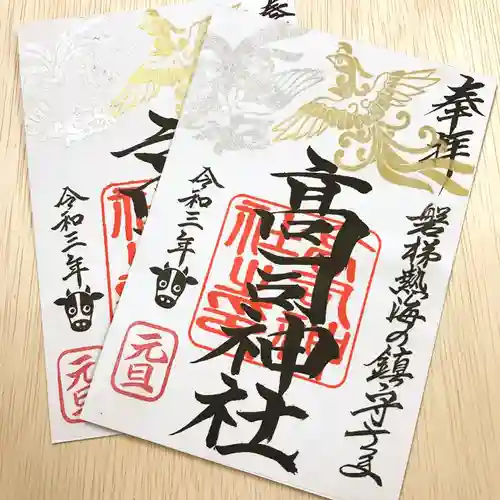 奉拝
磐梯熱海の鎮守さま
高司神社
令和三年
元旦
令和三年
元旦